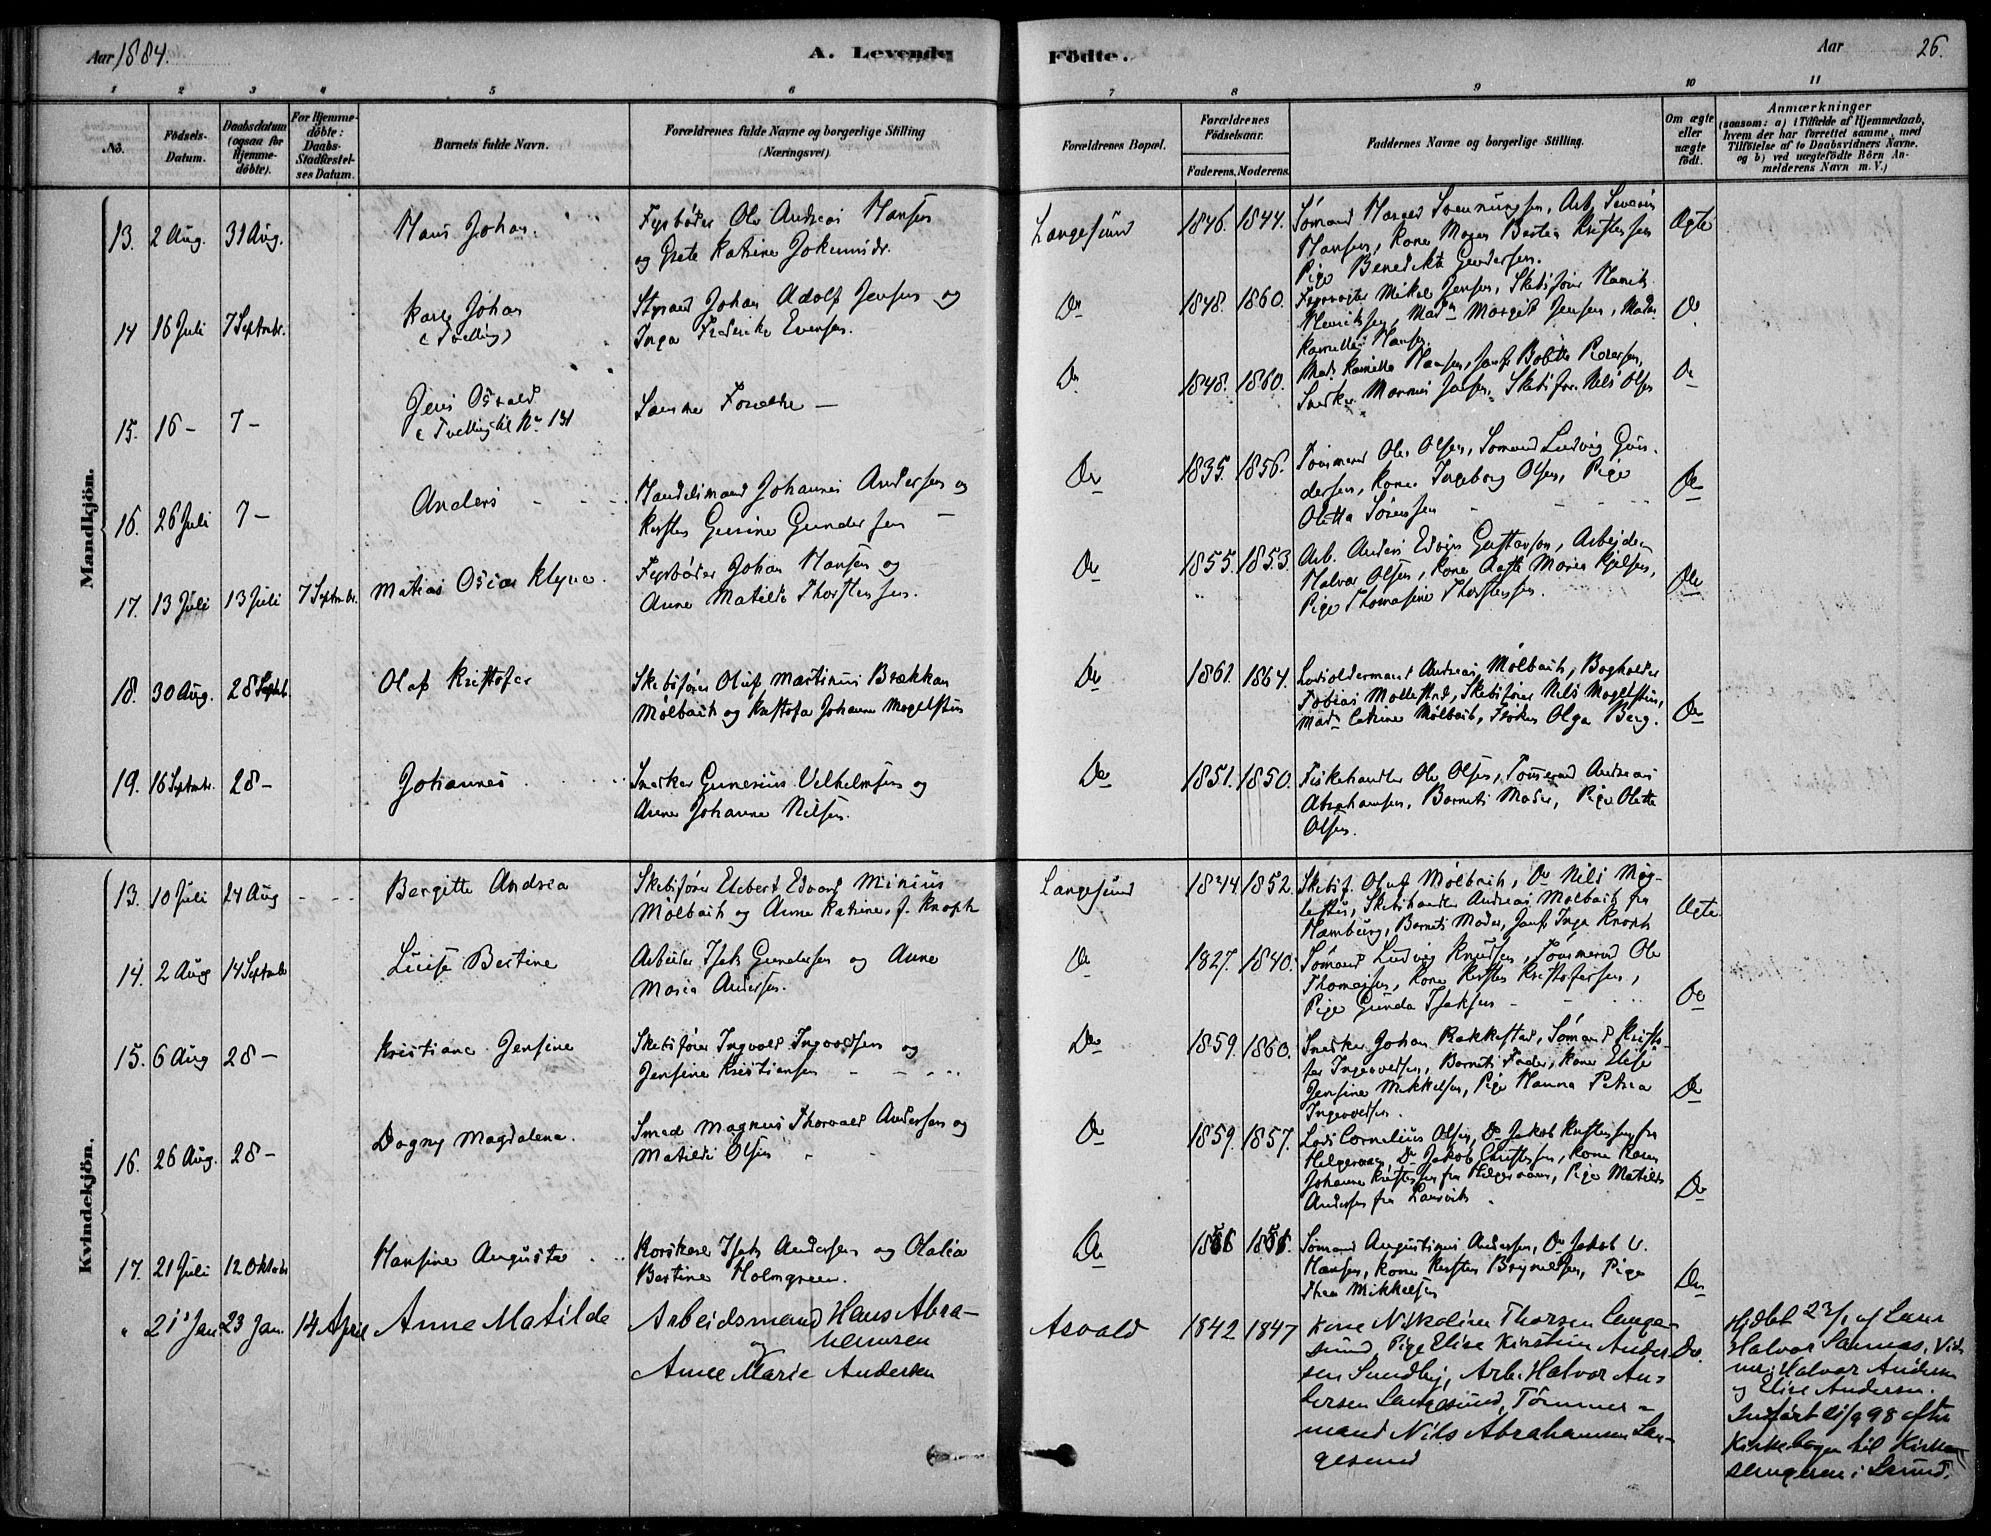 Aar 1884.
A. Levende Födte.
Aar
26.
1 2 3 4 5 6 7 8 9 10 11
No.
Födsels-
Datum.
Daabsdatum
(ogsaa for
Hjemme-
döbte).
For Hjemme-
döbte:
Daabs-
Stadfæstel-
ses Datum.
Barnets fulde Navn.
Forældrenes fulde Navne og borgerlige Stilling
(Næringsvei)
Forældrenes Bopæl.
Forældrenes
Födselsaar.
Faderens. Moderens.
Faddernes Navne og borgerlige Stilling.
Om ægte
eller
uægte
födt.
Anmærkninger
(saasom: a) i Tilfælde af Hjemmedaab,
hvem der har forrettet samme, med
Tilföielse af to Daabsvidners Navne.
og b) ved uægtefödte Börn An-
melderens Navn m. V.)
Mandkjön.
13. 2 Aug. 31 Aug. Hans Johan.
Fyrböder Ole Andreas Hansen
og Grete Katrine Jokumsdr.
Langesund 1846. 1844.
Sömand Sveinungsen, Arb. Severin
Hansen, Kone Maren Bertea Kristensen
Pige Benedikte Gundersen.
Ægte
14 16 Juli 7 Septmbr. Karl Johan
(Tvilling)
Styrmd Johan Adolf Jensen og
Inga Fredrikke Evensen.
Do 1848. 1860.
Mikal Jensen, Skibsförer Henrik
Henriksen, Madm Margit Jensen, Madm
Kamilla Hansen.
Do
15. 16 - 7 - Jens Osvald
(Tvilling til No 131
Samme Forældre -
Do 1848. 1860.
Mad. Kamilla Hansen, Jomf. Bolette Pedersen,
Snedker Jensen, Skibsför. Nils Olsen
Do
16. 26 Juli 7 - Anders
Handelsmand Johannes Andersen og
Kirsten Gurine Gundersen -
Do 1835. 1856.
Tömmermd Ole Olsen, Sömand Ludvig Gun-
dersen, Kone Ingeborg Olsen, Pige
Oletta Sörensen
Do
17. 13 Juli 13 Juli 7 Septmbr. Matias Oscar
Fyrböder Johan Hansen og
Anne Matilde Thorstensen.
Do 1855. 1853.
Arb. Anders Edvin Gustavson, Arbejder
Halvor Olsen, Kone Maren
Pige Thomasine Thorstensen.
Do
18. 30 Aug. 28 Septb. Olaf Kristofer
Skibsförer Oluf Martinus Brækkan
Mölbach og Kristofa Johanne Mogelstus
Do 1861. 1864.
Lodsoldermand Andreas Mölbach, Bogholder
Tobias Möllestad, Skibsförer Nils Mogelstus,
Madm Catrine Mölbach, Fröken Olga Berg.
Do
19. 16 Septmbr. 28 - Johannes
Snedker Gunerius Vilhelmsen og
Anne Johanne Nilsen.
Do 1851. 1850.
Fiskehandler Ole Olsen, Tömrmd Andreas
Abrahamsen, Barnets Moder, Pige Oletta
Olsen.
Kvindekjön.
13. 10 Juli 24 Aug Bergitte Andrea
Skibsförer Edvard Minius
Mölbach og Anne Katrine, f. Knoph
Langesund 1844. 1852.
Skibsf. Oluf Mölbach, Do Nils Mog-
lestus, Skibshandler Andreas Mölbach fra
Hamburg, Barnets Moder, Jomf. Inga Knoph
Ægte
14. 2 Aug 14 Septmbr Lucise Bertine
Arbeider Isak Gundersen og Anne
Maria Andersen.
Do 1827. 1840.
Sömand Ludvig Knudsen, Tömmermd Ole
Thomassen, Kone Kirsten Kristofersen,
Pige Gunda Isaksen -
Do
15. 6 Aug 28 - Kristiane Jensine
Skibsförer Ingvald Ingvoldsen og
Jensine Kristiansen
Do 1859. 1860.
Snedker Johan Rakkestad, Sömand Kristo-
fer Ingvoldsen, Barnets Fader, Kone Elise
Jensine Mikkelsen, Pige Hanna Petrea
Ingvoldsen.
Do
16. 26 Aug. 28 - Dagny Magdalena.
Smed Magnus Thorvald Andersen og
Matilde Olsen
Do 1859. 1857.
Lods Cornelius Olsen, Do Jakob Kristensen fra
Helgeroaen, Do Jakob Christensen, Kone Karen
Johanne Kristensen fra Helgeroaen, Pige Matilde
Andersen fra Laurvik.
Do
17. 21 Juli 12 Oktobr Hansine Augusta
Isak Andersen og Olalia
Bertine Holmgreen.
Do
Sömand Augustinus Andersen, Do Jakob V.
Hansen, Kone Kirsten Brynildsen, Pige
Thea Mikkelsen
Do
" 21 Jan. 23 Jan. 14 April Anne Matilde
Arbeidsmand Hans Abra-
hamsen
og
Anne Marie Andersen
Asvald 1842 1847
Kone Nikoline Thorsen Lange-
sund, Pige Elise Kirstine Ander-
sen Sundby, Arb. Halvor An-
dersen Langesund, Tömmer-
mand Nils Abrahamsen Lan-
gesund
Do.
Hjdbt 23/1 af Lærer
Halvor Sannas, Vid-
ner: Halvor Andersen
og Elise Andersen.
Indfört 21/9 98 efter
Kirkebogen til Kirke-
sangeren i Lsund.